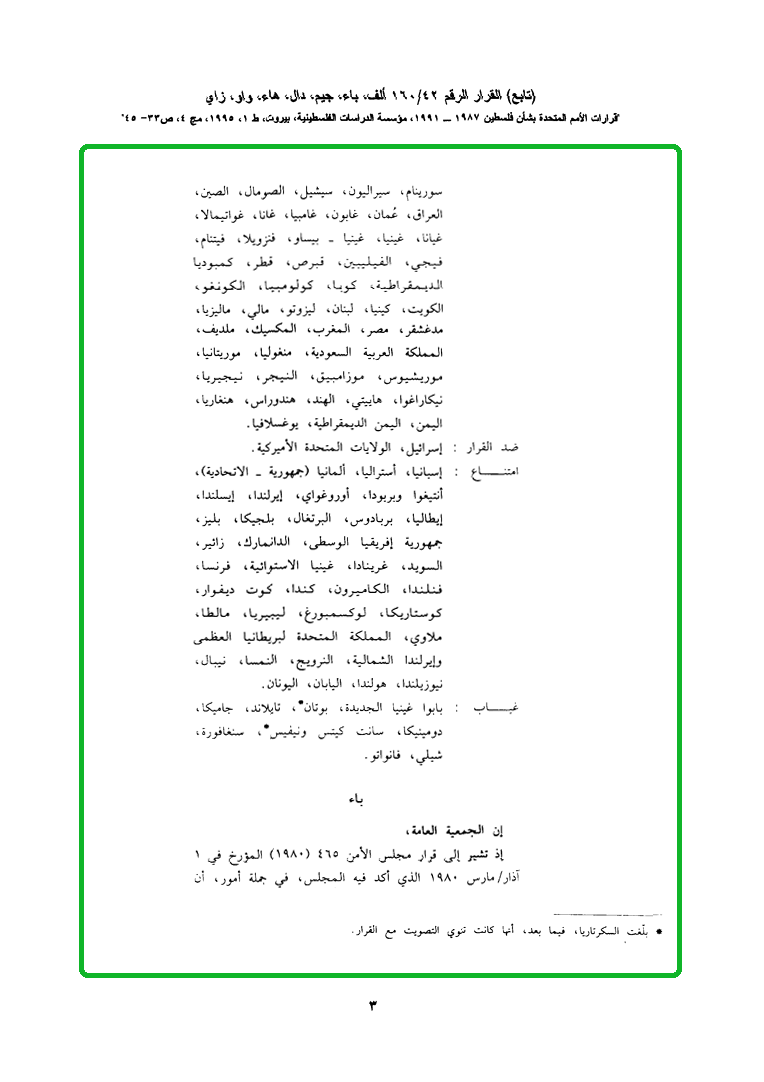 (تابع) القرار الرقم ١٦٠/٤٢ ألف، باء، جيم، دال، هاء، واو، زاي
"قرارات الأمم المتحدة بشأن فلسطين ١٩٨٧ ــ ١٩٩١، مؤسسة الدراسات الفلسطينية، بيروت، ط ١، ١٩٩٥، مج ٤، ص٣٣- ٤٥"
سورينام، سيراليون، سيشيل، الصومال، الصين،
العراق، عُمان، غابون، غامبيا، غانا، غواتيمالا،
غيانا، غينيا، غينيا ـ بيساو، فنزويلا، فيتنام،
فيجي، الفيليبين، قبرص، قطر، كمبوديا
الديمقراطية، كوبا، كولومبيا، الكونغو،
الكويت، كينيا، لبنان، ليزوتو، مالي، ماليزيا،
مدغشقر، مصر، المغرب، المكسيك، ملديف،
المملكة العربية السعودية، منغوليا، موريتانيا،
موريشيوس، موزامبيق، النيجر، نيجيريا،
نيكاراغوا، هاييتي، الهند، هندوراس، هنغاريا،
اليمن، اليمن الديمقراطية، يوغسلافيا.
ضد القرار : إسرائيل، الولايات المتحدة الأميركية.
امتنـــاع : إسبانيا، أستراليا، ألمانيا (جمهورية ـ الاتحادية)،
أنتيغوا وبربودا، أوروغواي، إيرلندا، إيسلندا،
إيطاليا، بربادوس، البرتغال، بلجيكا، بليز،
جمهورية إفريقيا الوسطى، الدانمارك، زائير،
السويد، غرينادا، غينيا الاستوائية، فرنسا،
فنلندا، الكاميرون، كندا، كوت ديفوار،
كوستاريكا، لوكسمبورغ، ليبيريا، مالطا،
ملاوي، المملكة المتحدة لبريطانيا العظمى
وإيرلندا الشمالية، النرويج، النمسا، نيبال،
نيوزيلندا، هولندا، اليابان، اليونان.
غيـــاب : بابوا غينيا الجديدة، بوتان*، تايلاند، جاميكا،
دومينيكا، سانت كيتس ونيفيس*، سنغافورة،
شيلي، فانواتو.
باء
إن الجمعية العامة،
إذ تشير إلى قرار مجلس الأمن ٤٦٥ (١٩٨٠) المؤرخ في ١
آذار/مارس ١٩٨٠ الذي أكد فيه المجلس، في جملة أمور، أن
* بلّغت السكرتاريا، فيما بعد، أنها كانت تنوي التصويت مع القرار.
٣